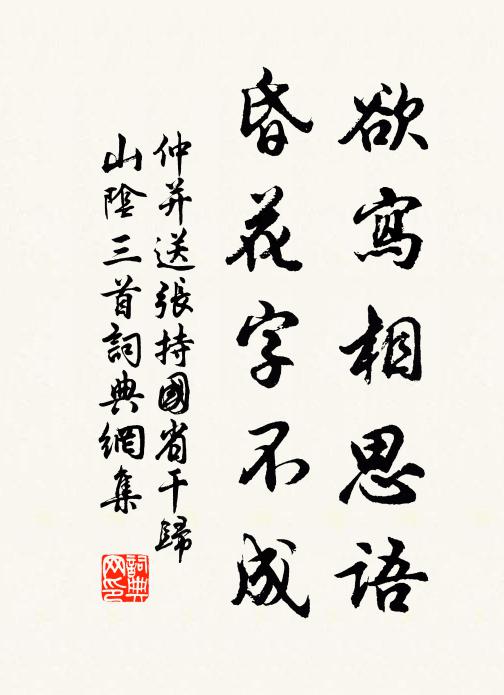 欲寫相思語
昏花字不成
仲并送張持國省干歸
山陰三首詞典網集
詞典
网印